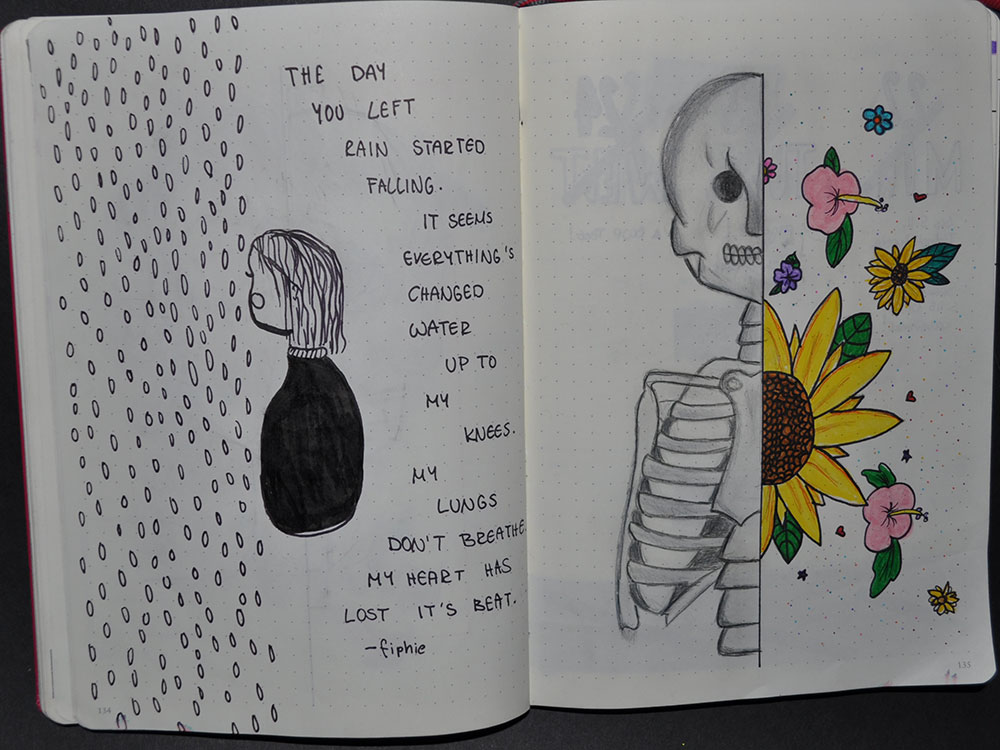 THE DAY
YOU LEFT
RAIN STARTED
FALLING.
IT SEEMS
EVERYTHING'S
CHANGED
WATER
UP TO
MY
KNEES.
MY
LUNGS
DON'T BREATHE
MY HEART HAS
LOST IT'S BEAT.
-fiphie
134
135